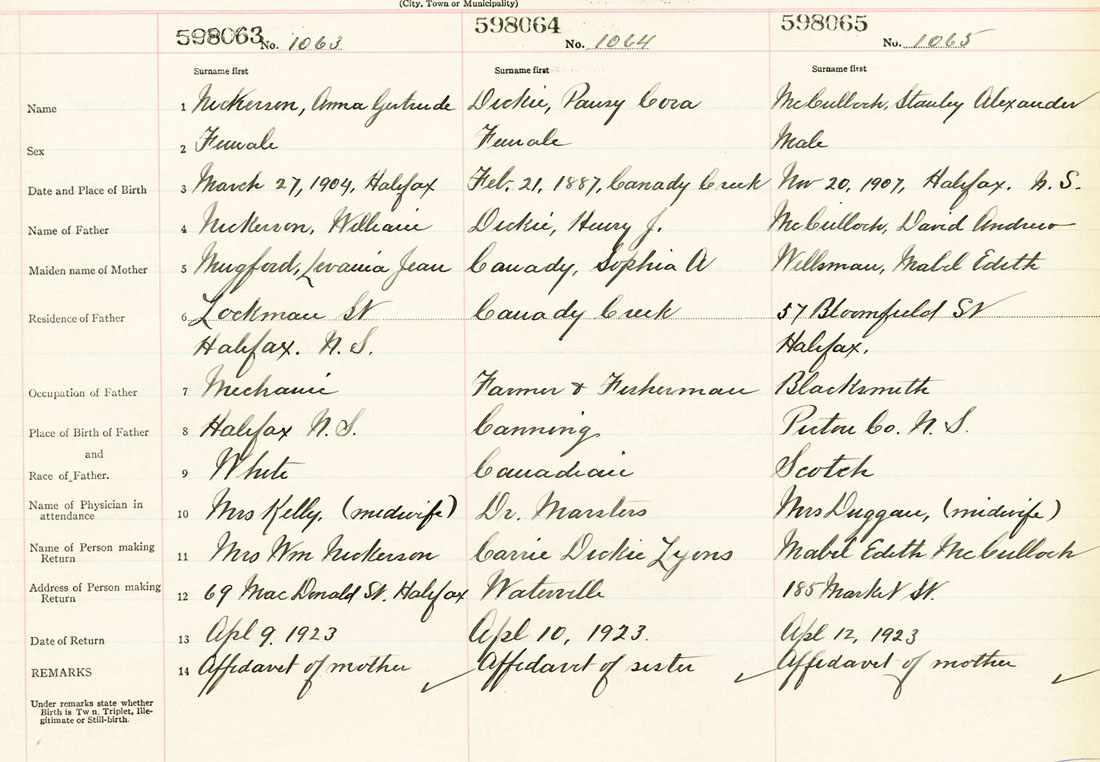 (City, Town or Municipality)
598063 No. 1063 598064 No. 1064 598065 No. 1065
Surname first Surname first Surname first
Name 1 Nickerson, Anna Gertrude Dickie, Pansy Cora McCulloch, Stanley Alexander
Sex 2 Female Female Male
Date and Place of Birth 3 March 27, 1904, Halifax Feb. 21, 1887, Canady Creek Nov 20, 1907, Halifax. N.S.
Name of Father 4 Nickerson, William Dickie, Henry J. McCulloch, David Andrew
Maiden name of Mother 5 Mugford, Levania Jean Canady, Sophia A Wellsman, Mabel Edith
Residence of Father 6 Lockman St Canady Creek 57 Bloomfield St
Halifax. N.S. Halifax.
Occupation of Father 7 Mechanic Farmer & Fisherman Blacksmith
Place of Birth of Father 8 Halifax N.S. Canning Pictou Co. N.S.
and
Race of Father. 9 White Canadian Scotch
Name of Physician in
attendance 10 Mrs Kelly, (midwife) Dr. Marsters Mrs Duggan, (midwife)
Name of Person making
Return 11 Mrs Wm Nickerson Carrie Dickie Lyons Mabel Edith McCulloch
Address of Person making
Return 12 69 MacDonald St. Halifax Waterville 185 Market St.
Date of Return 13 Apl 9, 1923 Apl 10, 1923. Apl 12, 1923
REMARKS 14 Affidavit of mother Affidavit of sister Affidavit of mother
Under remarks state whether
Birth is Tw n, Triplet, Ille-
gitimate or Still-birth.